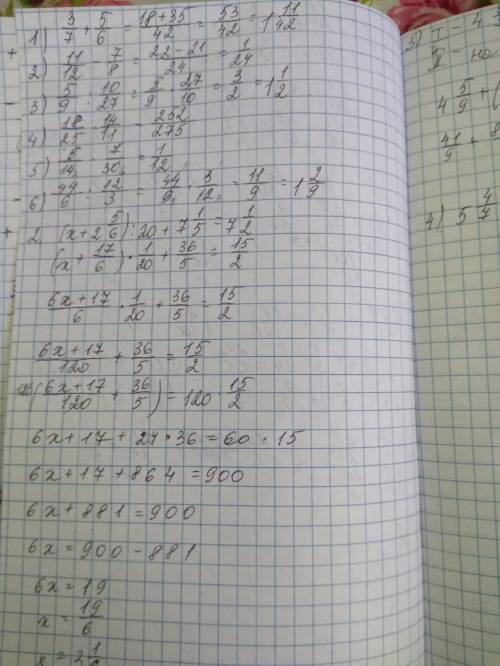 1) 3/7 + 5/6 = (18+35)/42 = 53/42 = 1 11/42
2) 11/12 - 7/8 = (22-21)/24 = 1/24
3) 5/9 : 10/27 = 5/9 · 27/10 = 3/2 = 1 1/2
4) 18/21 · 14/11 = 252/275
5) 7/30 = 1/12
6) 44/6 : 12/3 = 44/9 · 3/12 = 11/9 = 1 2/9
2. (x+2 5/6) : 20 + 7 1/5 = 7 1/2
(x + 17/6) · 1/20 + 36/5 = 15/2
(6x+17)/6 · 1/20 + 36/5 = 15/2
(6x+17)/120 + 36/5 = 15/2
((6x+17)/120 + 36/5) = 120 · 15/2
6x+17 + 24·36 = 60 · 15
6x+17+864 = 900
6x+881 = 900
6x = 900 - 881
6x = 19
x = 19/6
x = 3 1/6
3)
4 5/9 + (
41/9 +
4) 5 4/7